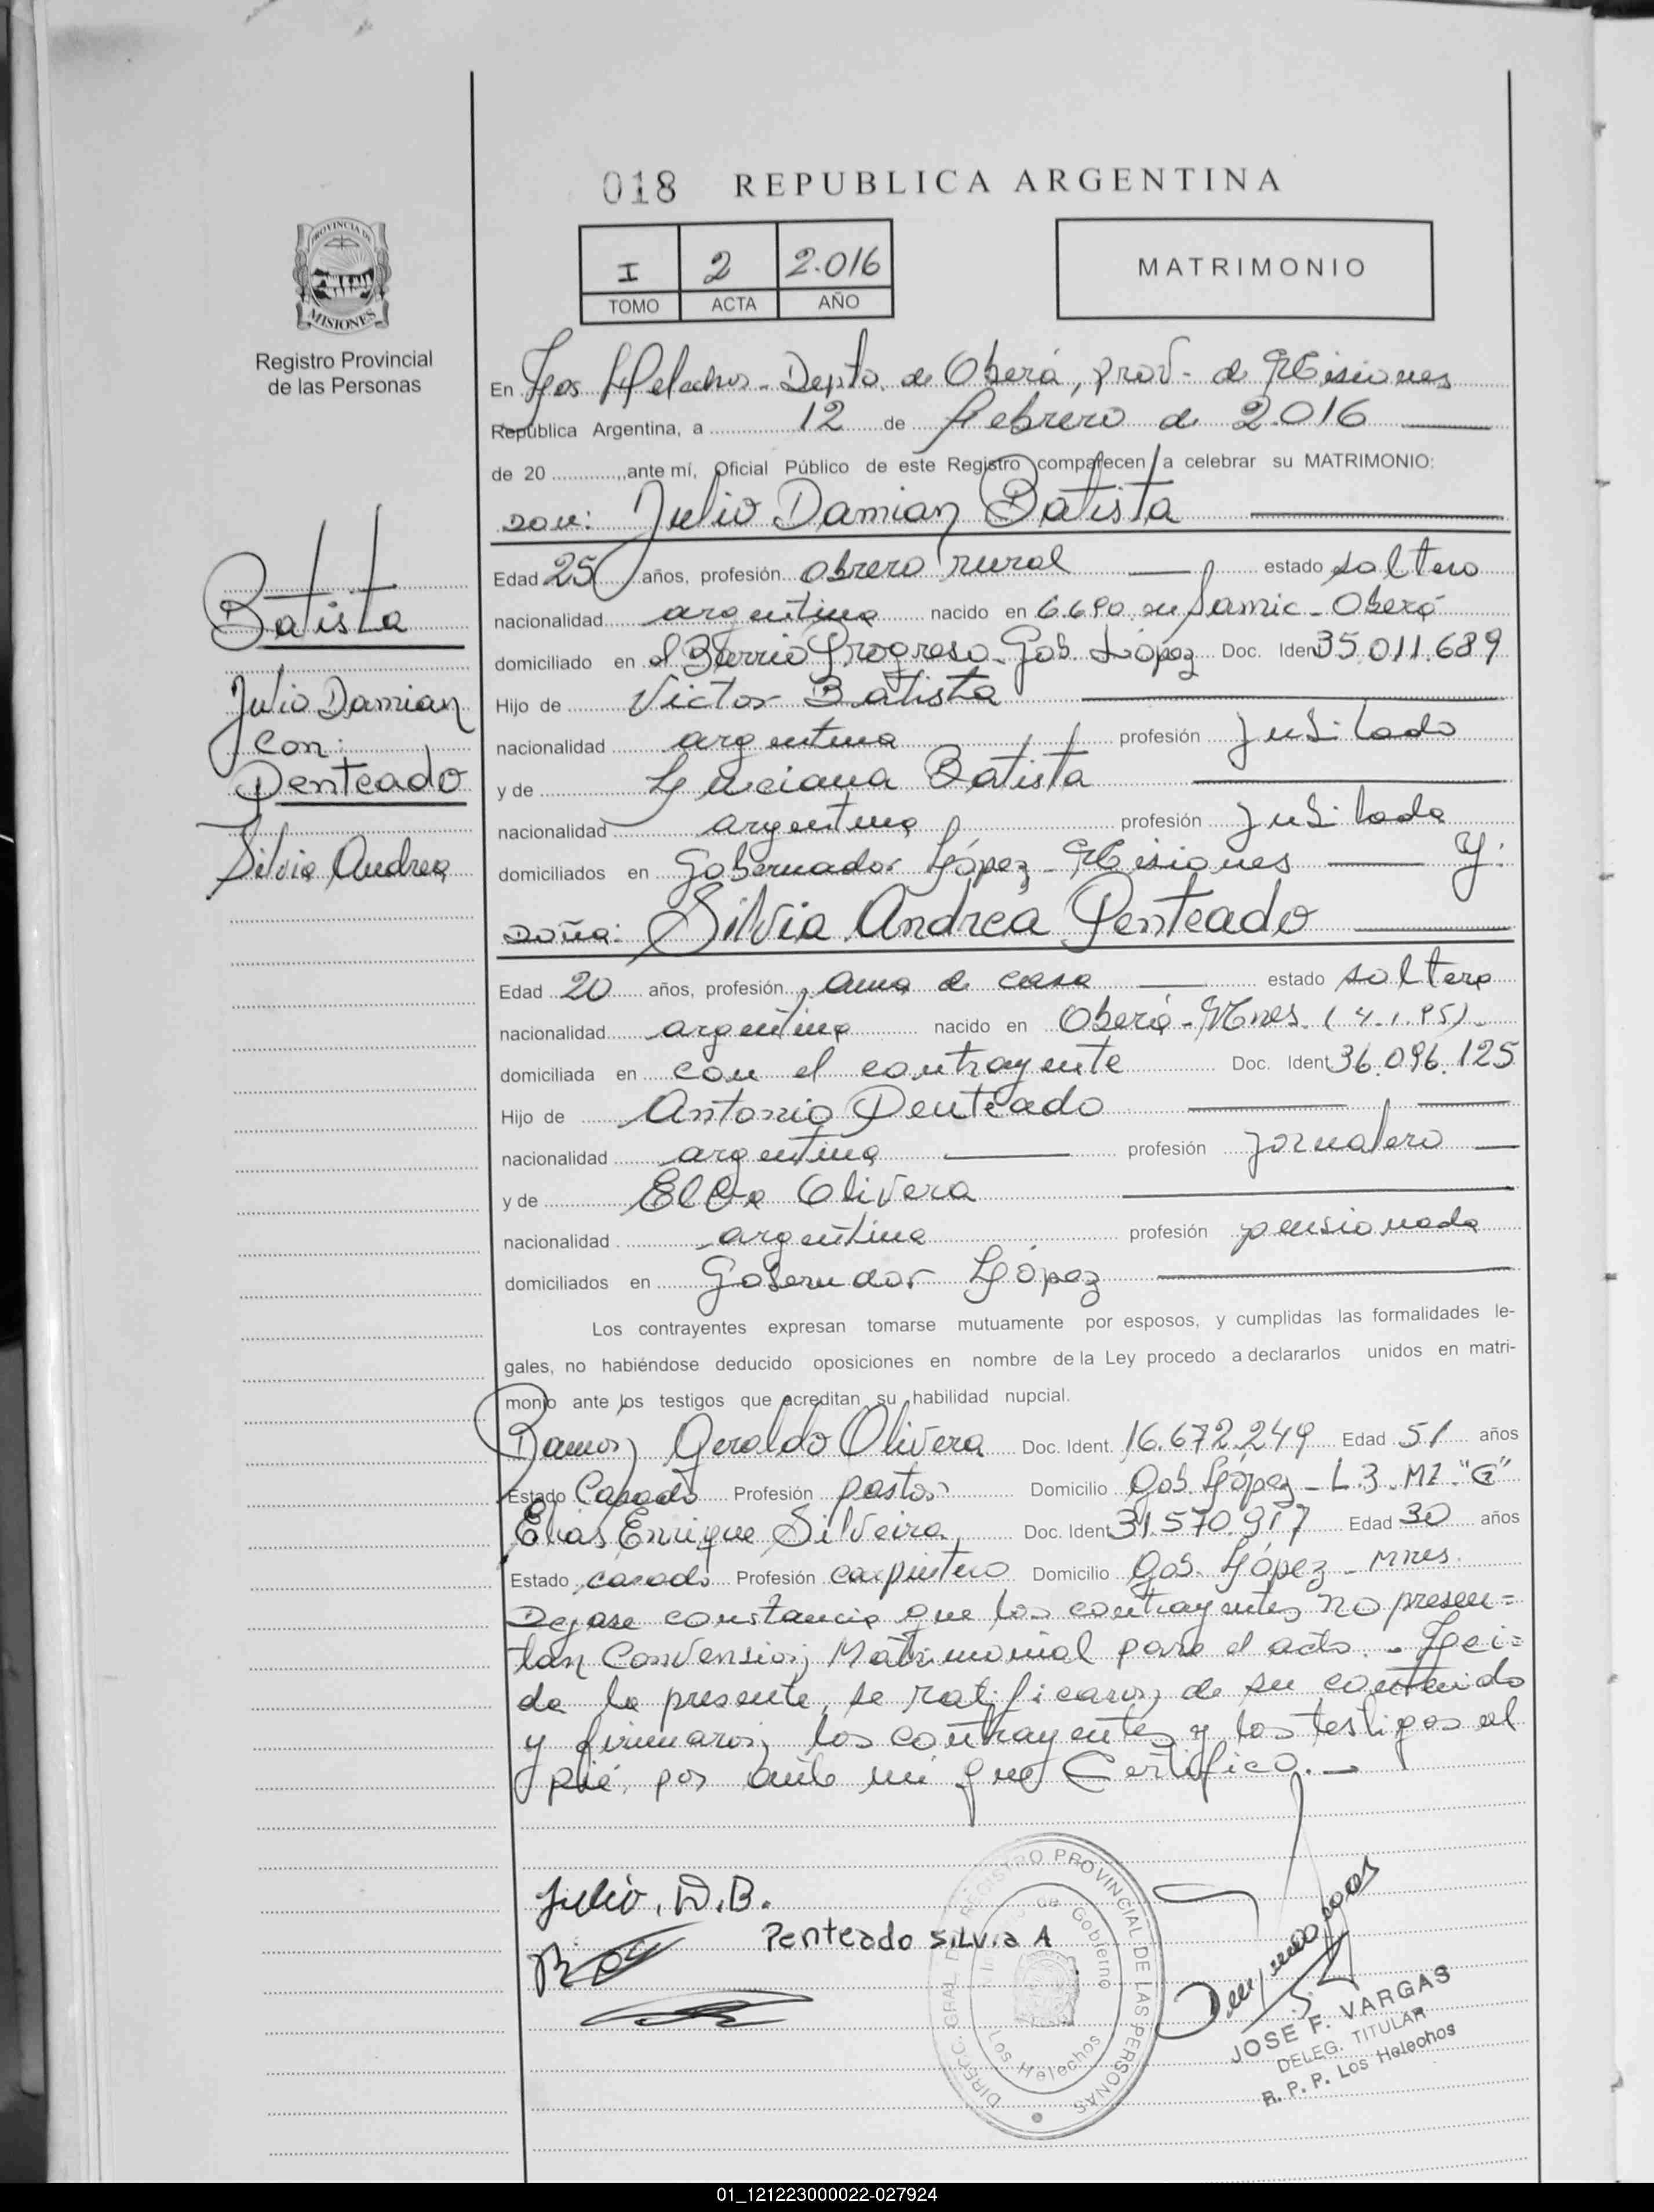 018 REPUBLICA ARGENTINA
I 2 2.016
TOMO ACTA AÑO
MATRIMONIO
PROVINCIA DE
MISIONES
Registro Provincial
de las Personas
En Los Helechos - Depto. de Oberá, prov. de Misiones
República Argentina, a 12 de febrero de 2.016
de 20 ante mí, Oficial Público de este Registro comparecen a celebrar su MATRIMONIO:
DON: Julio Damian Batista
Batista
Julio Damian
con:
Penteado
Silvia Andrea
Edad 25 años, profesión obrero rural estado soltero
nacionalidad argentina nacido en 6.6.90 en Samic - Oberá
domiciliado en el Barrio Progreso - Gob. López Doc. Iden 35.011.689
Hijo de Victor Batista
nacionalidad argentina profesión Jubilado
y de Luciana Batista
nacionalidad argentina profesión Jubilada
domiciliados en Gobernador López - Misiones Y:
DOÑA: Silvia Andrea Penteado
Edad 20 años, profesión ama de casa estado soltera
nacionalidad argentina nacido en Oberá - Mnes. (4.1.95).
domiciliada en con el contrayente Doc. Ident 36.096.125
Hijo de Antonio Penteado
nacionalidad argentina profesión jornalero
y de Olivera
nacionalidad argentina profesión pensionada
domiciliados en Goberndor López
Los contrayentes expresan tomarse mutuamente por esposos, y cumplidas las formalidades le-
gales, no habiéndose deducido oposiciones en nombre de la Ley procedo a declararlos unidos en matri-
monio ante los testigos que acreditan su habilidad nupcial.
Ramon Geraldo Olivera Doc. Ident. 16.672.249 Edad 51 años
Estado Casado Profesión pastor Domicilio Gob. López - L.3. MZ. "G"
Elias Enrique Silveira Doc. Ident 31.570.917 Edad 30 años
Estado casado Profesión carpintero Domicilio Gob. López - Mnes.
Dejase constancia que los contrayentes no presen=
tan Convension Matrimonial para el acto. - Lei=
da la presente, se ratificaron de su contenido
y firmaron los contrayentes y los testigos al
pié, por ante mi que Certifico. -
Julio. D.B.
Penteado SiLvia A
DIRECC. GRAL DE REGISTRO PROVINCIAL DE LAS PERSONAS
de Gobierno
Los Helechos
JOSE F. VARGAS
DELEG. TITULAR
R. P. P. Los Helechos
01_121223000022-027924